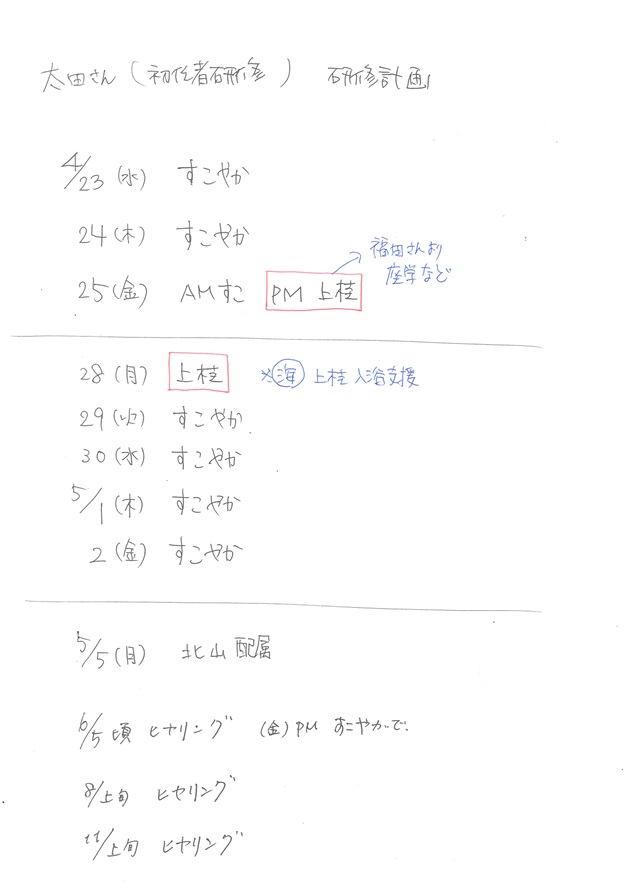 太田さん（初任者研修） 研修計画
4/23（水） すこやか
24（木） すこやか
福田さんより
座学など
25（金） AMすこ PM 上桂
28（月） 上桂 ※海 上桂 入浴支援
29（火） すこやか
30（水） すこやか
5/1（木） すこやか
2（金） すこやか
5/5（月） 北山 配属
6/5頃 ヒヤリング （金）PM すこやかで.
8/上旬 ヒヤリング
11/上旬 ヒヤリング